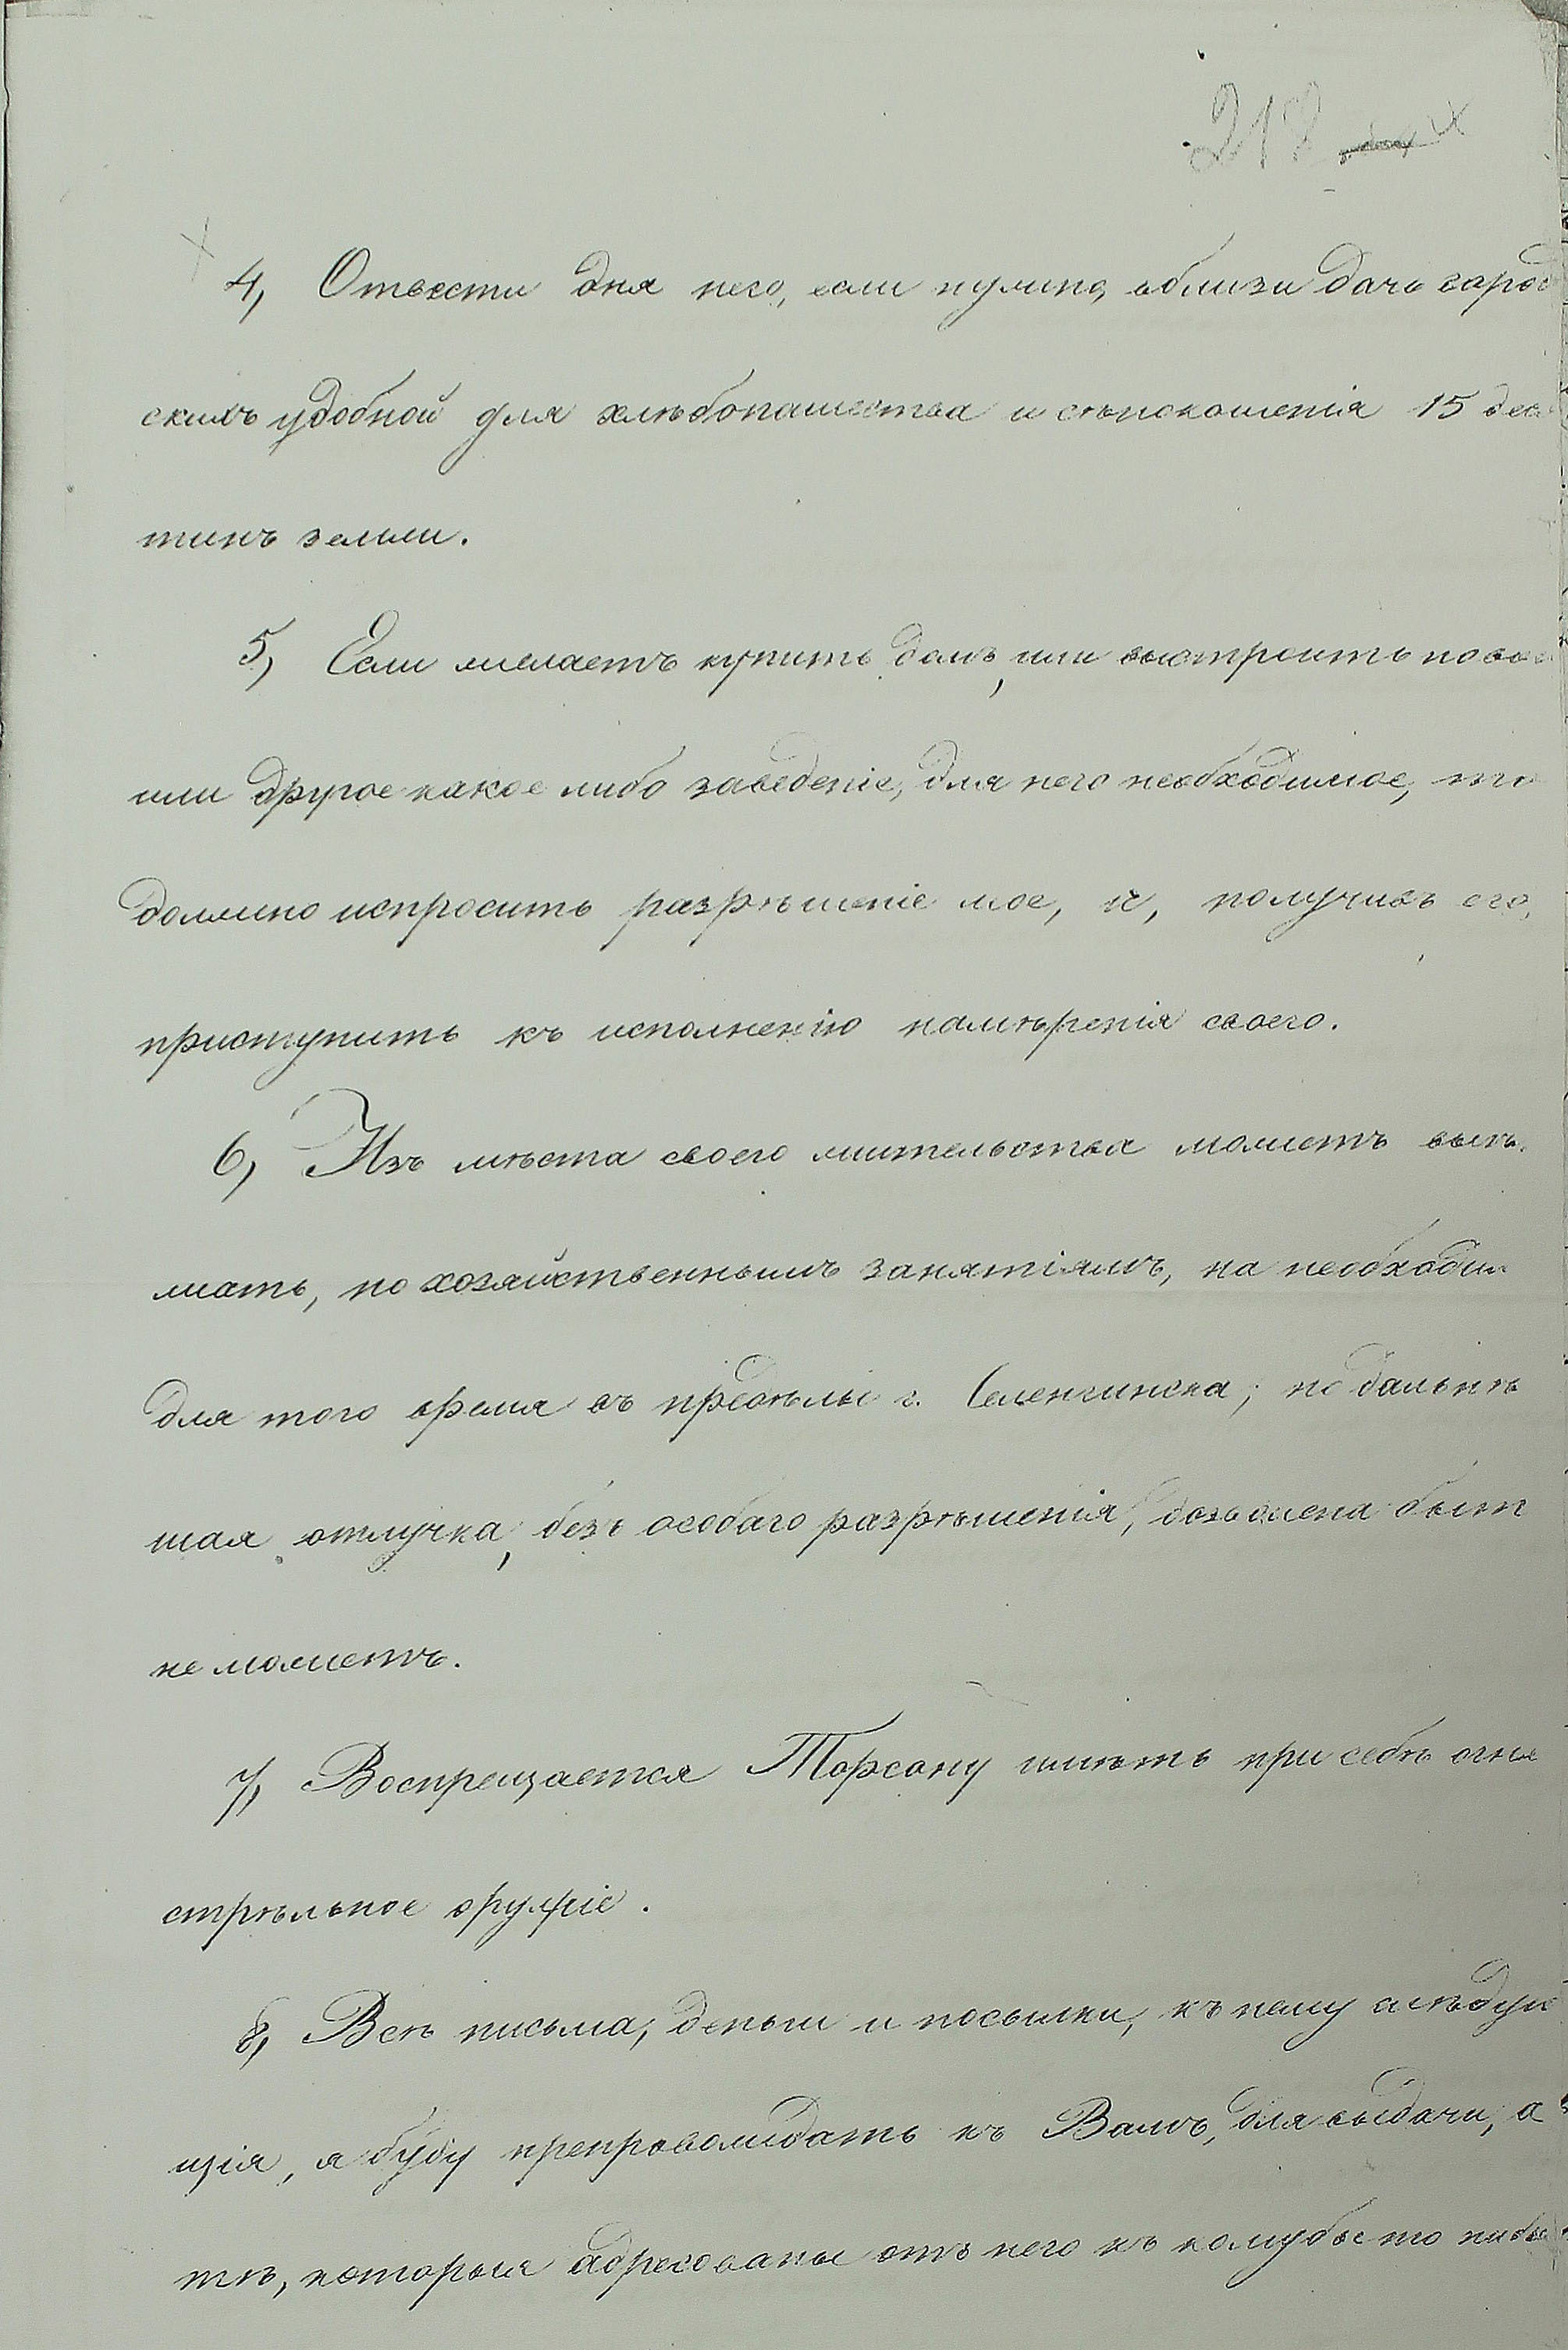 218
4, Отвести для него, если нужно, вблизи дачь город
скихъ удобной для хлѣбопашества и сѣнокошенія 15 деся
тинъ земли.
5, Если желаетъ купить домъ, или выстроить новы
или другое какое либо заведеніе, для него необходимое, то
должно испросить разрѣшеніе мое, и, получивъ его,
приступить къ исполненію намѣренія своего.
6, Изъ мѣста своего жительства можетъ выѣз
жать, по хозяйственнымъ занятіямъ, на необходим
для того время въ предѣлы г. Селенгинска; но дальнѣ
шая отлучка, безъ особаго разрѣшенія, дозволена быт
не можетъ.
7, Воспрещается Торсону имѣть при себѣ огне
стрѣльное оружіе.
8, Всѣ письма, деньги и посылки, къ нему слѣдую
щія, я буду препровождать къ Вамъ, для выдачи, а
тѣ, которыя адресованы отъ него къ кому бы то нибы